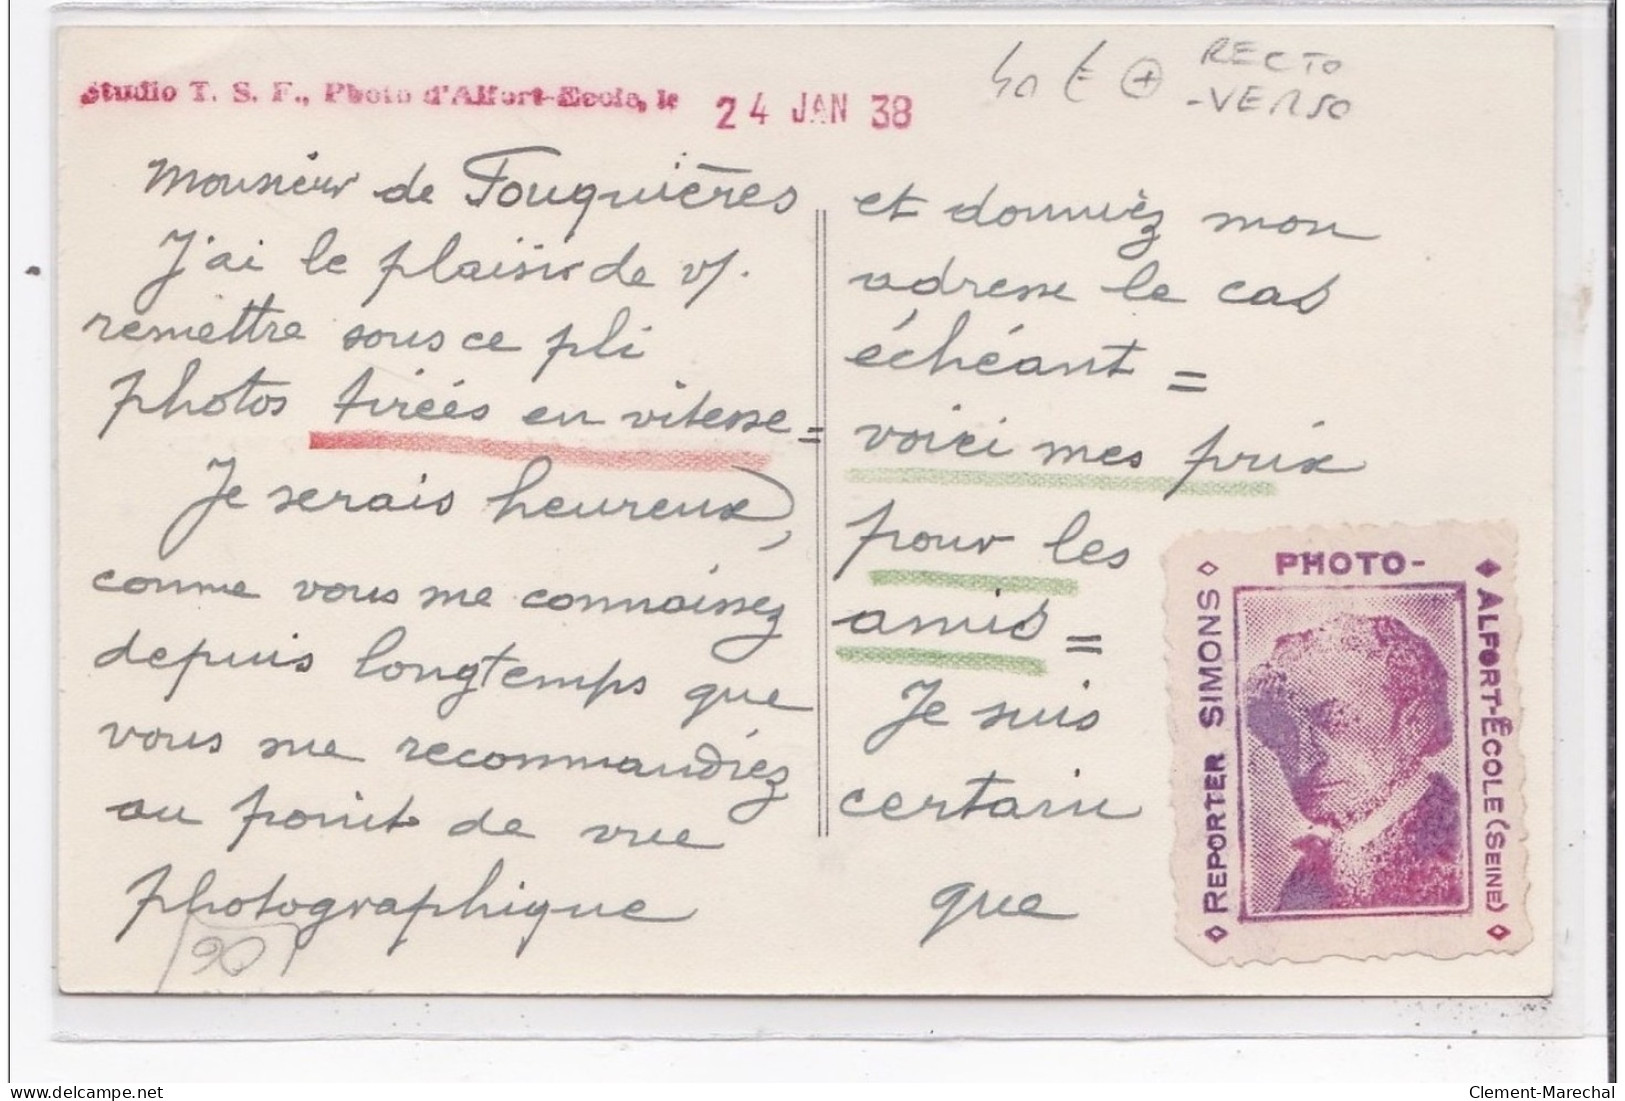 Studio T. S. F., Photo d'Alfort-Ecole, le 24 JAN 38
40 € + RECTO
-VERSO
Monsieur de Fouquières
J'ai le plaisir de v/.
remettre sous ce pli
photos tirées en vitesse =
Je serais heureux,
comme vous me connaissez
depuis longtemps que
vous me recommandiez
au point de vue
photographique
90
et donniez mon
adresse le cas
échéant =
voici mes prix
pour les
amis =
Je suis
certain
que
REPORTER SIMONS
PHOTO-
ALFORT-ÉCOLE (SEINE)
Clement-Marechal